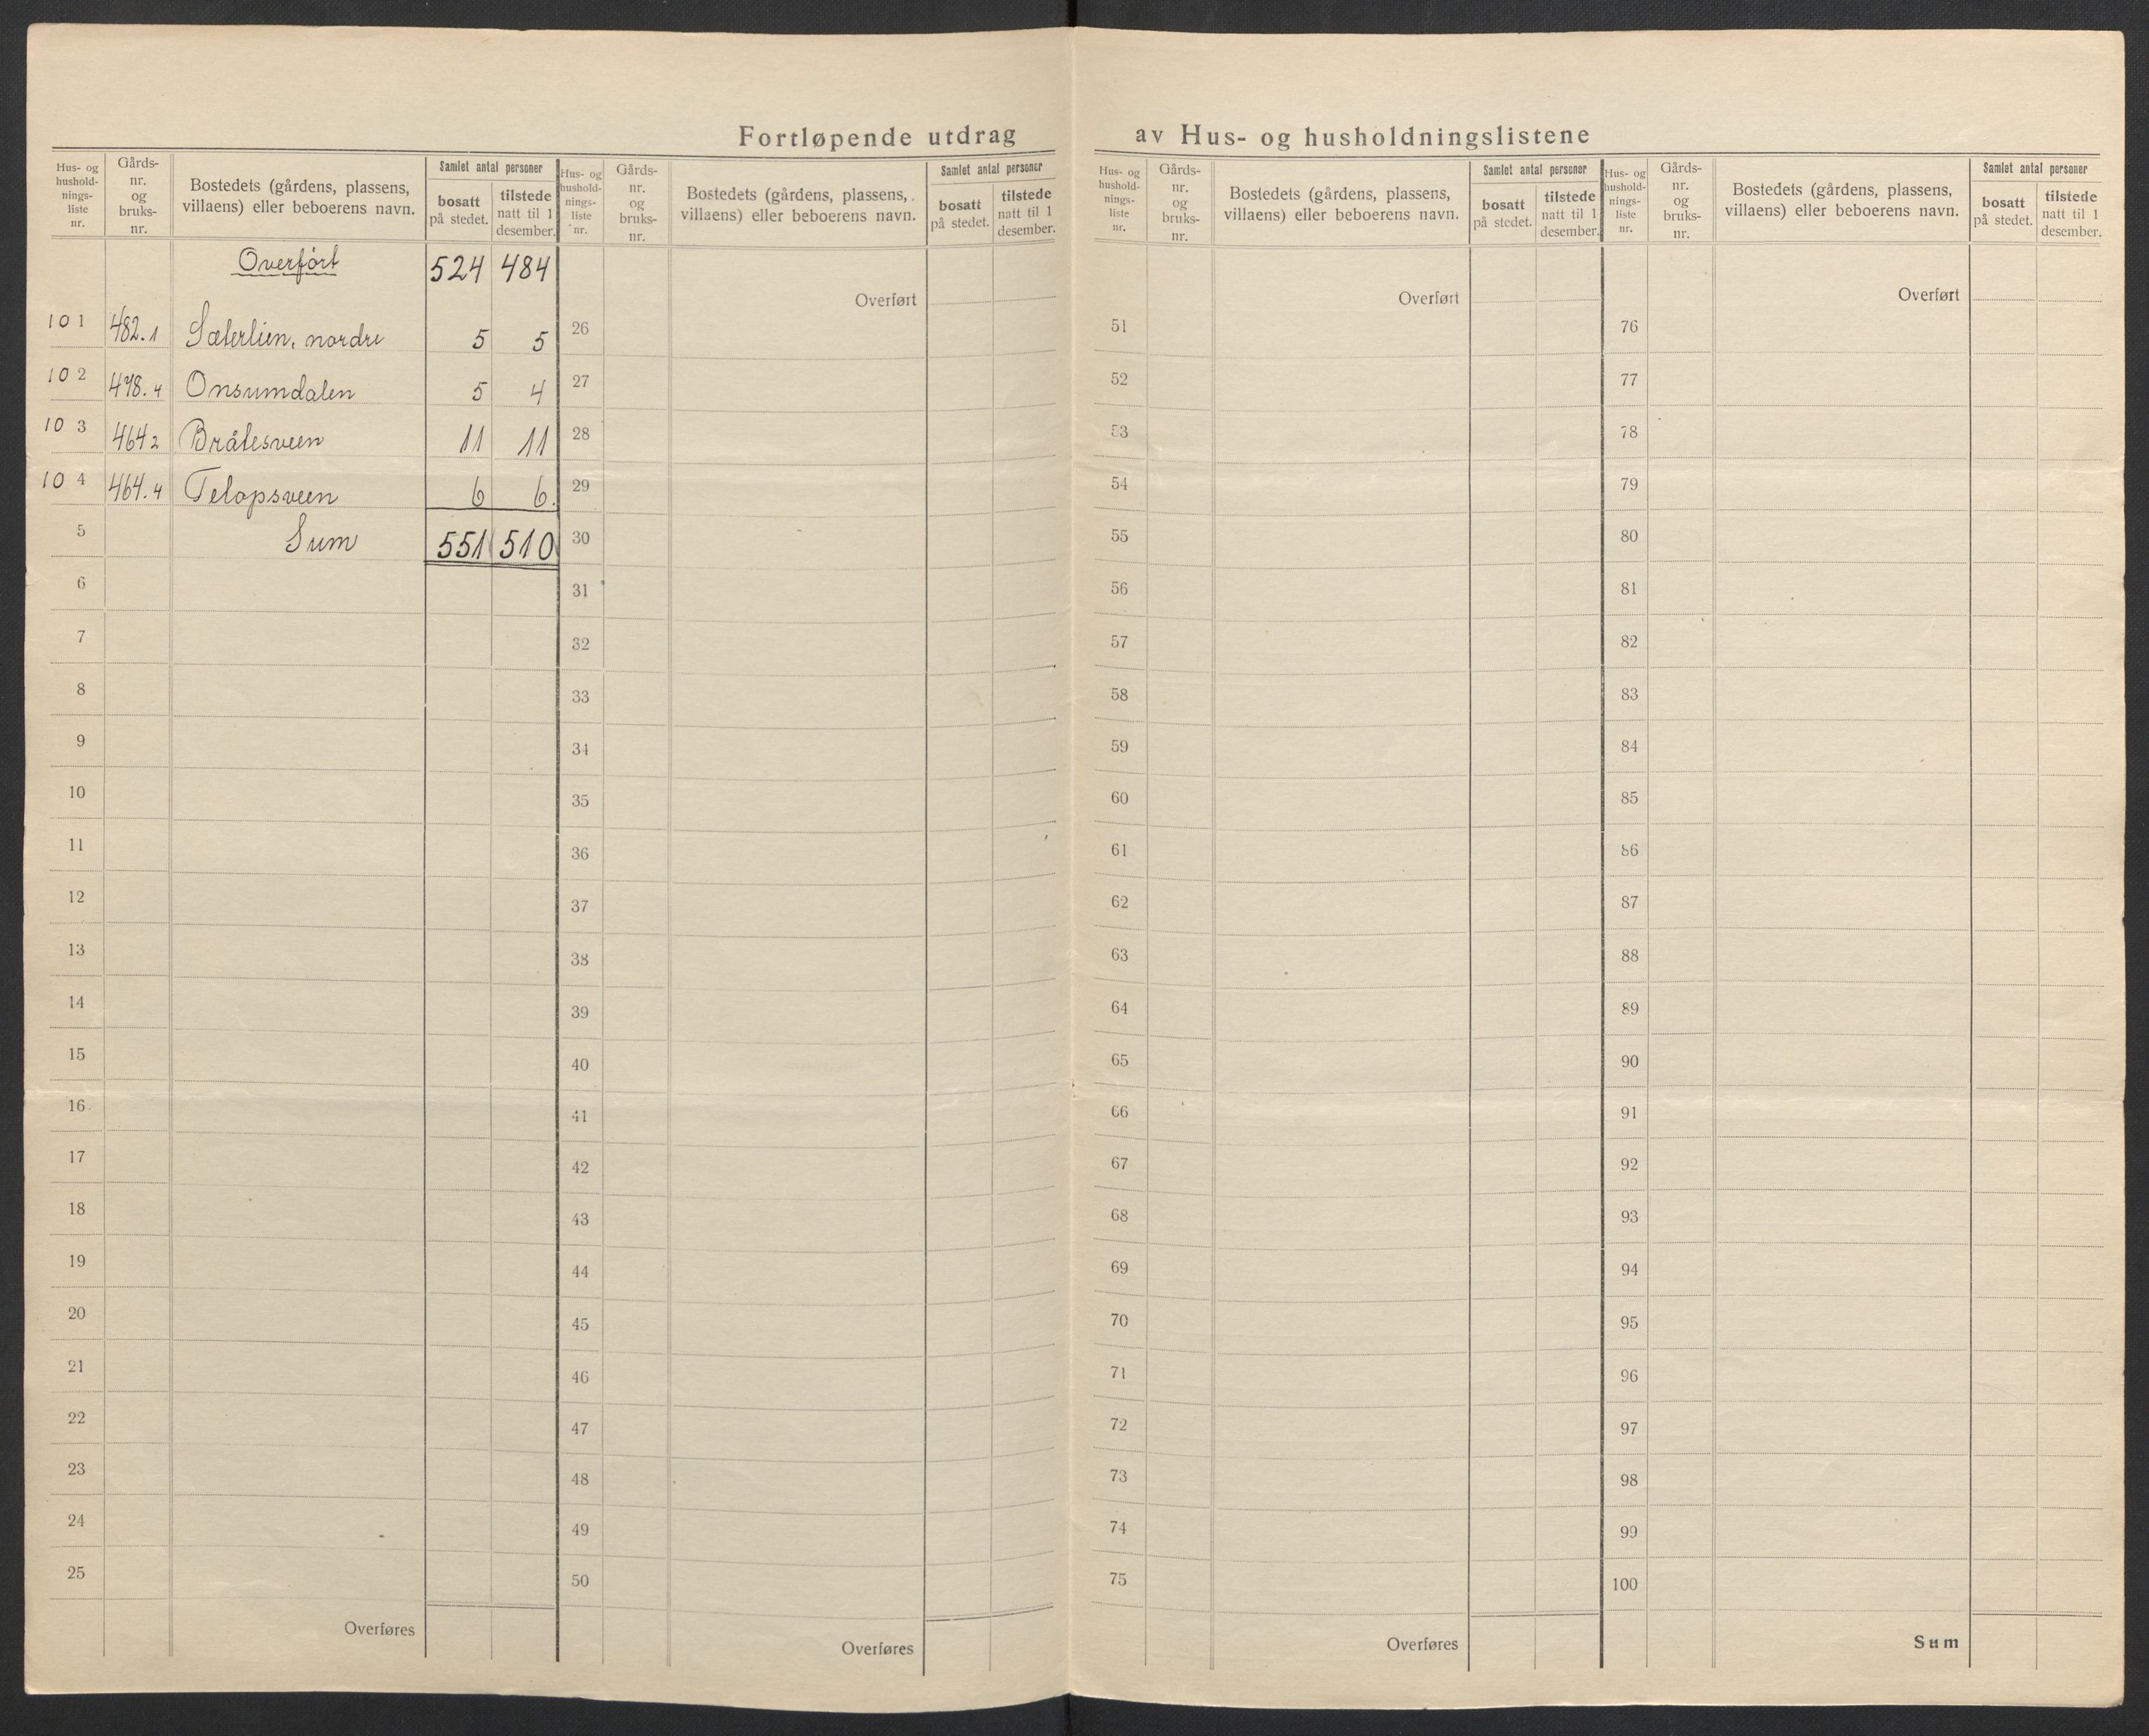 Fortløpende utdrag av Hus- og husholdningslistene
Hus- og hushold-nings-liste nr.
Gårds-nr. og bruks-nr.
Bostedets (gårdens, plassens, villaens) eller beboerens navn.
Samlet antal personer
bosatt på stedet.
tilstede natt til 1 desember.
Hus- og hushold-nings-liste nr.
Gårds-nr. og bruks-nr.
Bostedets (gårdens, plassens, villaens) eller beboerens navn.
Samlet antal personer
bosatt på stedet.
tilstede natt til 1 desember.
Hus- og hushold-nings-liste nr.
Gårds-nr. og bruks-nr.
Bostedets (gårdens, plassens, villaens) eller beboerens navn.
Samlet antal personer
bosatt på stedet.
tilstede natt til 1 desember.
Hus- og hushold-nings-liste nr.
Gårds-nr. og bruks-nr.
Bostedets (gårdens, plassens, villaens) eller beboerens navn.
Samlet antal personer
bosatt på stedet.
tilstede natt til 1 desember.
Overført 524 484
101 482.1 Sæterlien, nordre 5 5
102 478.4 Onsumdalen 5 4
103 464 2 Bråtesveen 11 11
104 464.4 Telopsveen 6 6.
5 Sum 551 510
6
7
8
9
10
11
12
13
14
15
16
17
18
19
20
21
22
23
24
25
Overføres
Overført
26
27
28
29
30
31
32
33
34
35
36
37
38
39
40
41
42
43
44
45
46
47
48
49
50
Overføres
Overført
51
52
53
54
55
56
57
58
59
60
61
62
63
64
65
66
67
68
69
70
71
72
73
74
75
Overføres
Overført
76
77
78
79
80
81
82
83
84
85
86
87
88
89
90
91
92
93
94
95
96
97
98
99
100
Sum